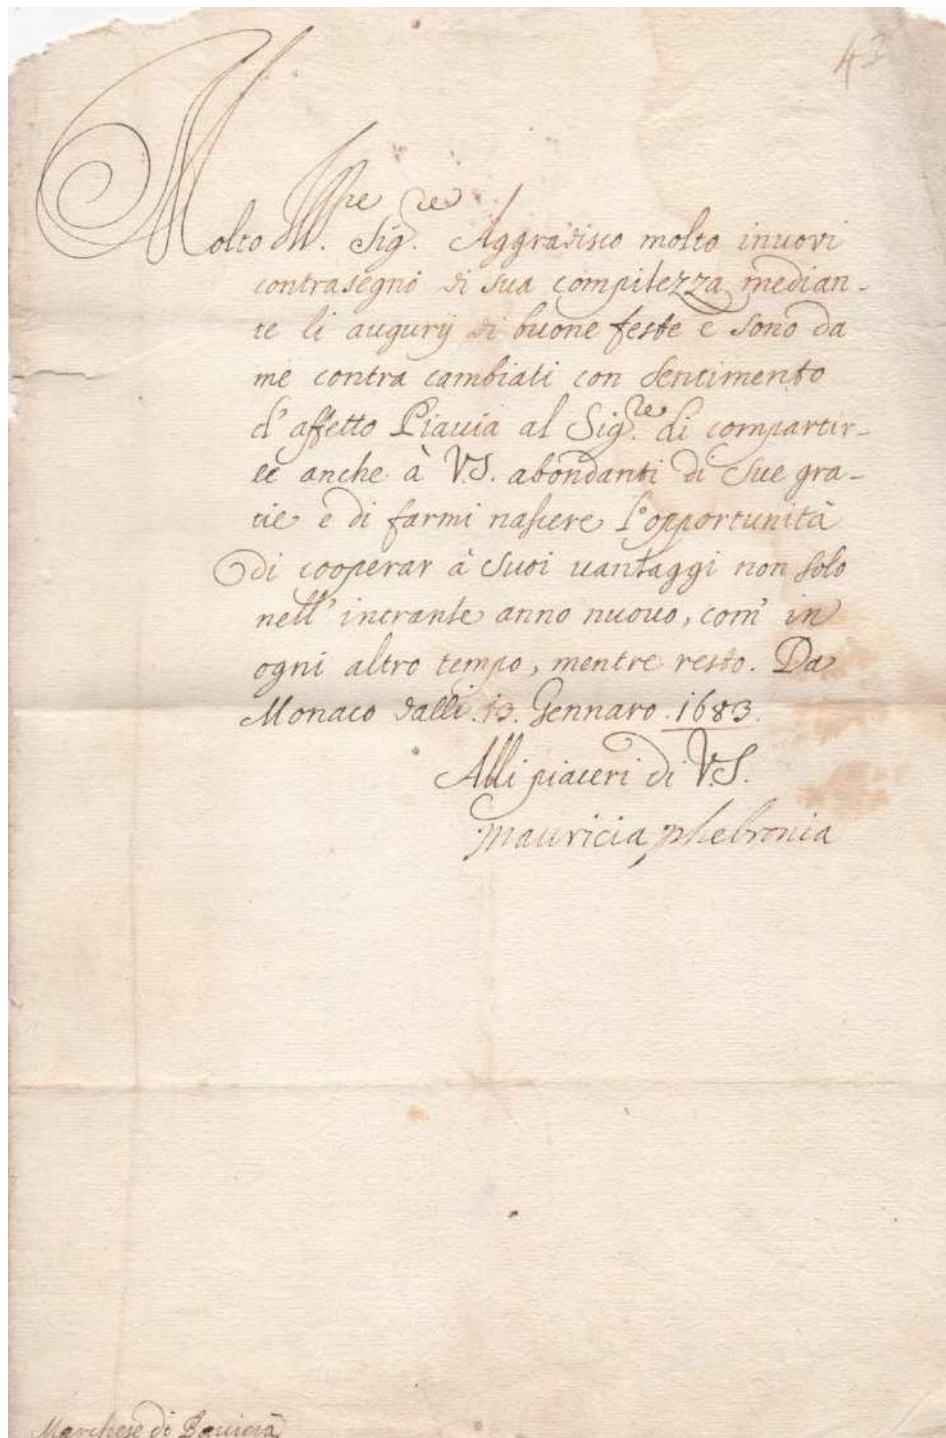 43
Molto Ill.re Sig.re Aggradisco molto i nuovi
contrasegni di sua compitezza median-
te li augurij di buone feste e sono da
me contra cambiati con sentimento
d'affetto Piaccia al Sig.re di compartir-
le anche à V.S. abondanti di sue gra-
tie e di farmi nascere l'opportunità
di cooperar à suoi uantaggi non solo
nell'intrante anno nuouo, com' in
ogni altro tempo, mentre resto. Da
Monaco dalli .13. Gennaro .1683.
Alli piaceri di V.S.
Mauricia phebronia
Marchese di Bauiera